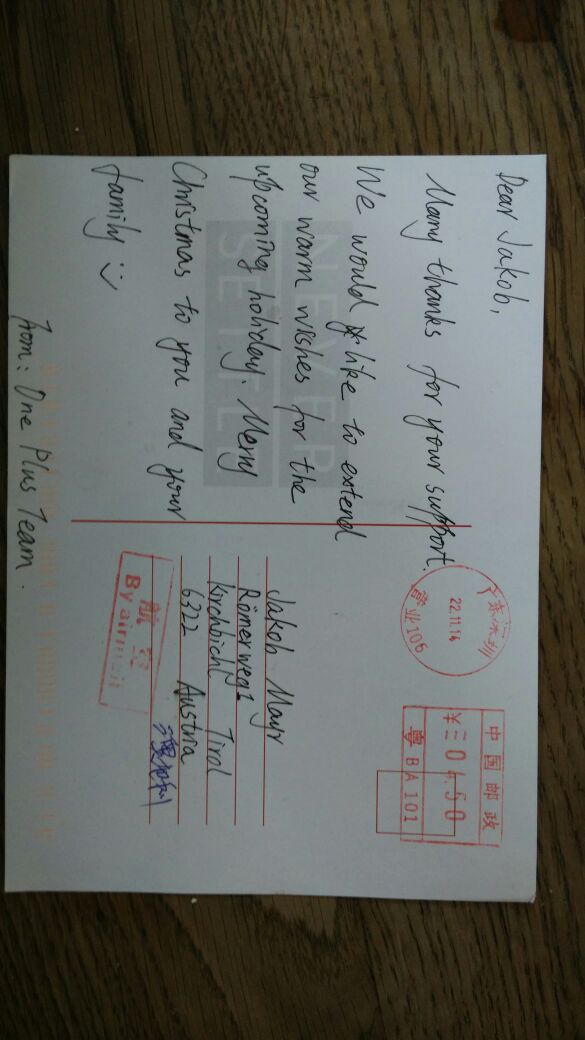 Dear Jakob,
Many thanks for your support.
We would like to extend
our warm wishes for the
upcoming holiday. Merry
Christmas to you and your
family :)
From: One Plus Team.
NEVER
SETTLE
广东深圳
22.11.14
营业106
中国邮政
¥=0450
粤BA101
Jakob Mayr
Römerweg1
Kirchbichl Tirol
6322 Austria
航空
By airmail